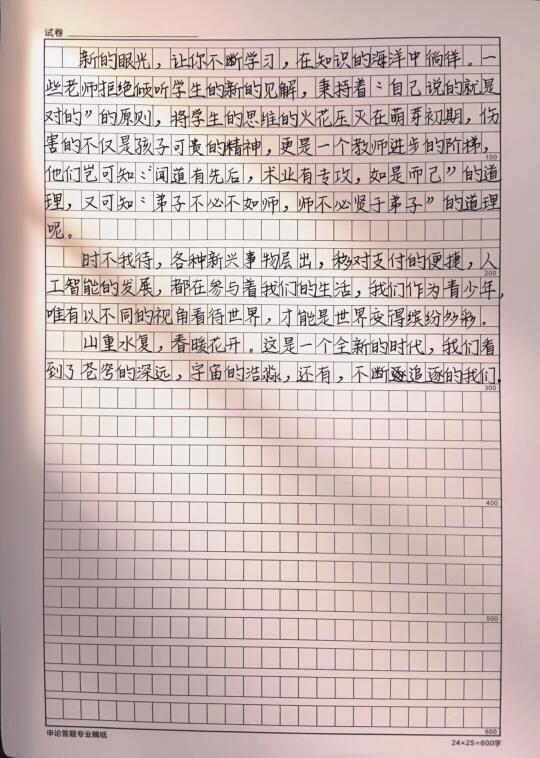 试卷
新的眼光，让你不断学习，在知识的海洋中徜徉。一
些老师拒绝倾听学生的新的见解，秉持着："自己说的就是
对的"的原则，将学生的思维的火花压灭在萌芽初期，伤
害的不仅是孩子可贵的精神，更是一个教师进步的阶梯，
100
他们岂可知："闻道有先后，术业有专攻，如是而已"的道
理，又可知："弟子不必不如师，师不必贤于弟子"的道理
呢。
时不我待，各种新兴事物层出，移对支付的便捷，人
200
工智能的发展，都在参与着我们的生活，我们作为青少年，
唯有以不同的视角看待世界，才能是世界变得缤纷多彩。
山重水复，春暖花开。这是一个全新的时代，我们看
到了苍穹的深远，宇宙的浩淼，还有，不断追逐的我们.
300
400
500
600
申论答题专业稿纸
24×25=600字